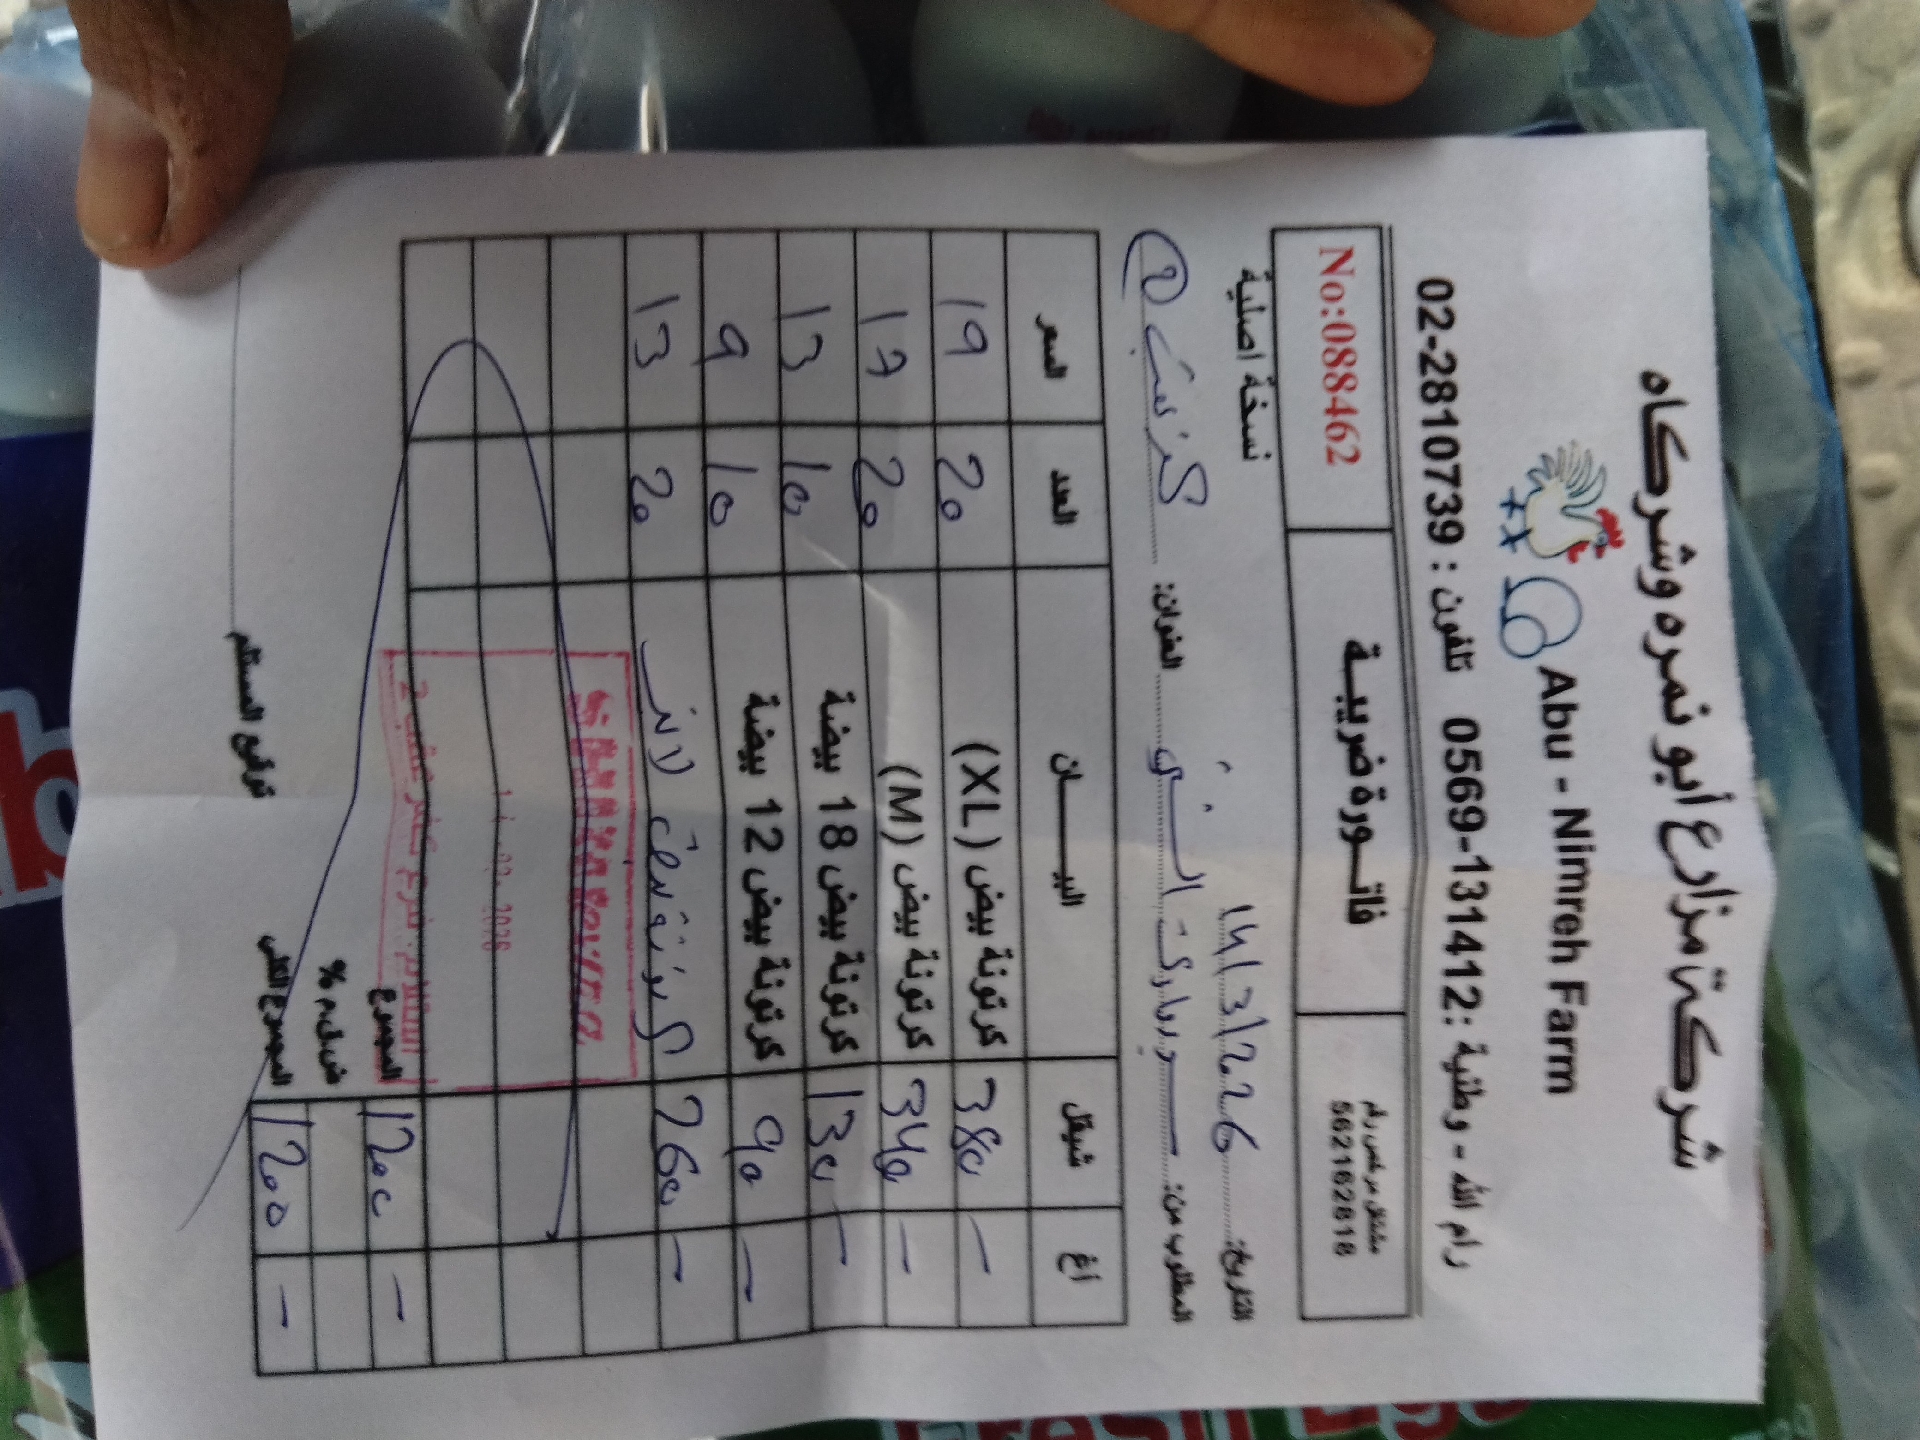 شركة مزارع أبو نمره وشركاه
Abu - Nimreh Farm
رام الله - وطنية : 0569-131412 تلفون : 02-2810739
مشتغل مرخص رقم
562162818
فاتورة ضريبية
No:08846​2
نسخة اصلية
التاريخ: 14/3/2026
المطلوب من: سوبرماركت السني العنوان: كفر عقب 2
شيقل أغ البيان العدد السعر
380 - كرتونة بيض (XL) 20 19
340 - كرتونة بيض (M) 20 17
130 - كرتونة بيض 18 بيضة 10 13
90 - كرتونة بيض 12 بيضة 10 9
260 - كرتونة 20 13
2026
السلام، فرع كفر عقب 2
1200 - المجموع
ض.ق.م %
1200 - المجموع الكلي
توقيع المستلم
Fresh Eggs